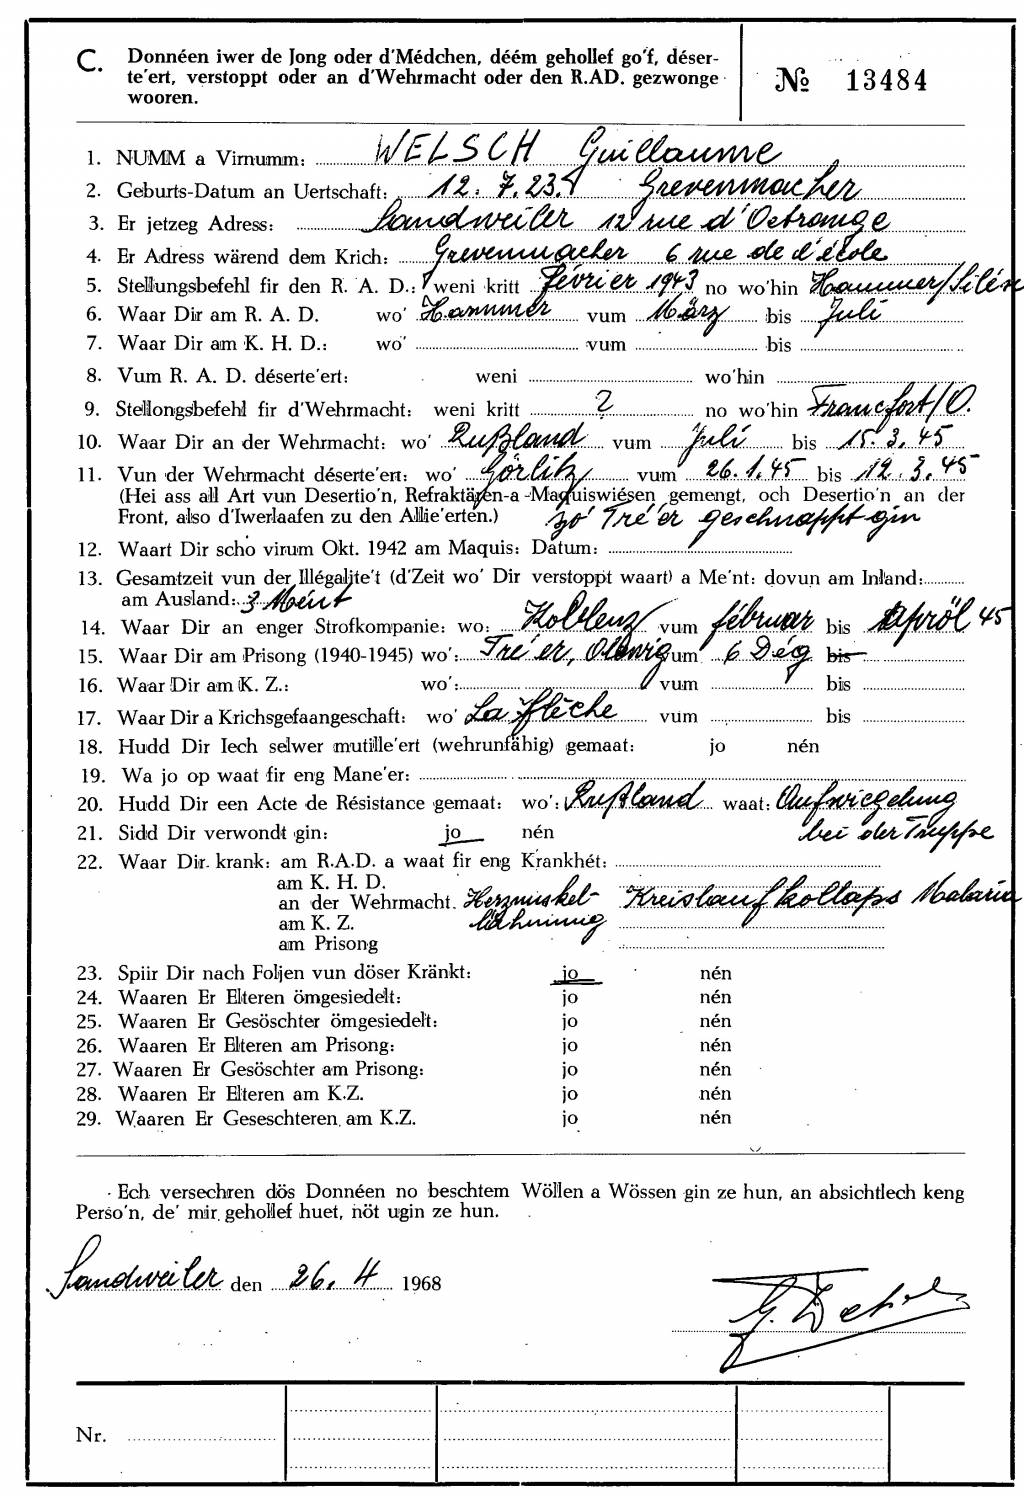 C. Donnéen iwer de Jong oder d'Médchen, déém gehollef go'f, déser-
te'ert, verstoppt oder an d'Wehrmacht oder den R.AD. gezwonge
wooren.
№ 13484
1. NUMM a Virnumm: WELSCH Guillaume
2. Geburts-Datum an Uertschaft: 12. 7. 23. Grevenmacher
3. Er jetzeg Adress: Sandweiler 12 rue d'Oetrange
4. Er Adress wärend dem Krich: Grevenmacher 6 rue de d'école
5. Stellungsbefehl fir den R. A. D.: weni kritt février 1943 no wo'hin Hammer/Silés
6. Waar Dir am R. A. D. wo' Hammer vum März bis Juli
7. Waar Dir am K. H. D.: wo' vum bis
8. Vum R. A. D. déserte'ert: weni wo'hin
9. Stellongsbefehl fir d'Wehrmacht: weni kritt ? no wo'hin Francfort/O.
10. Waar Dir an der Wehrmacht: wo' Rußland vum Juli bis 15. 3. 45
11. Vun der Wehrmacht déserte'ert: wo' Görlitz vum 26.1.45 bis 12.3.45
(Hei ass all Art vun Desertio'n, Refraktären-a-Maquiswiésen gemengt, och Desertio'n an der
Front, also d'Iwerlaafen zu den Allie'erten.) zo' Tré'er geschnappt gin
12. Waart Dir scho virum Okt. 1942 am Maquis: Datum:
13. Gesamtzeit vun der Illégalite't (d'Zeit wo' Dir verstoppt waart) a Me'nt: dovun am Inland:
am Ausland: 3 Ment
14. Waar Dir an enger Strofkompanie: wo: Koblenz vum februar bis Apröl 45
15. Waar Dir am Prisong (1940-1945) wo': Tré'er, vum 6 Deg bis
16. Waar Dir am K. Z.: wo': vum bis
17. Waar Dir a Krichsgefaangeschaft: wo' La Flèche vum bis
18. Hudd Dir Iech selwer mutille'ert (wehrunfähig) gemaat: jo nén
19. Wa jo op waat fir eng Mane'er:
20. Hudd Dir een Acte de Résistance gemaat: wo': Rußland waat: Aufwiegelung
21. Sidd Dir verwondt gin: jo nén bei der Truppe
22. Waar Dir krank: am R.A.D. a waat fir eng Krankhét:
am K. H. D.
an der Wehrmacht. Herzmuskel- Kreislaufkollaps Malaria
am K. Z. lähmung
am Prisong
23. Spiir Dir nach Foljen vun döser Kränkt: jo nén
24. Waaren Er Elteren ömgesiedelt: jo nén
25. Waaren Er Gesöschter ömgesiedelt: jo nén
26. Waaren Er Elteren am Prisong: jo nén
27. Waaren Er Gesöschter am Prisong: jo nén
28. Waaren Er Elteren am K.Z. jo nén
29. Waaren Er Geseschteren am K.Z. jo nén
Ech versechren dös Donnéen no beschtem Wöllen a Wössen gin ze hun, an absichtlech keng
Perso'n, de' mir gehollef huet, nöt ugin ze hun.
Sandweiler den 26. 4 1968
Nr.